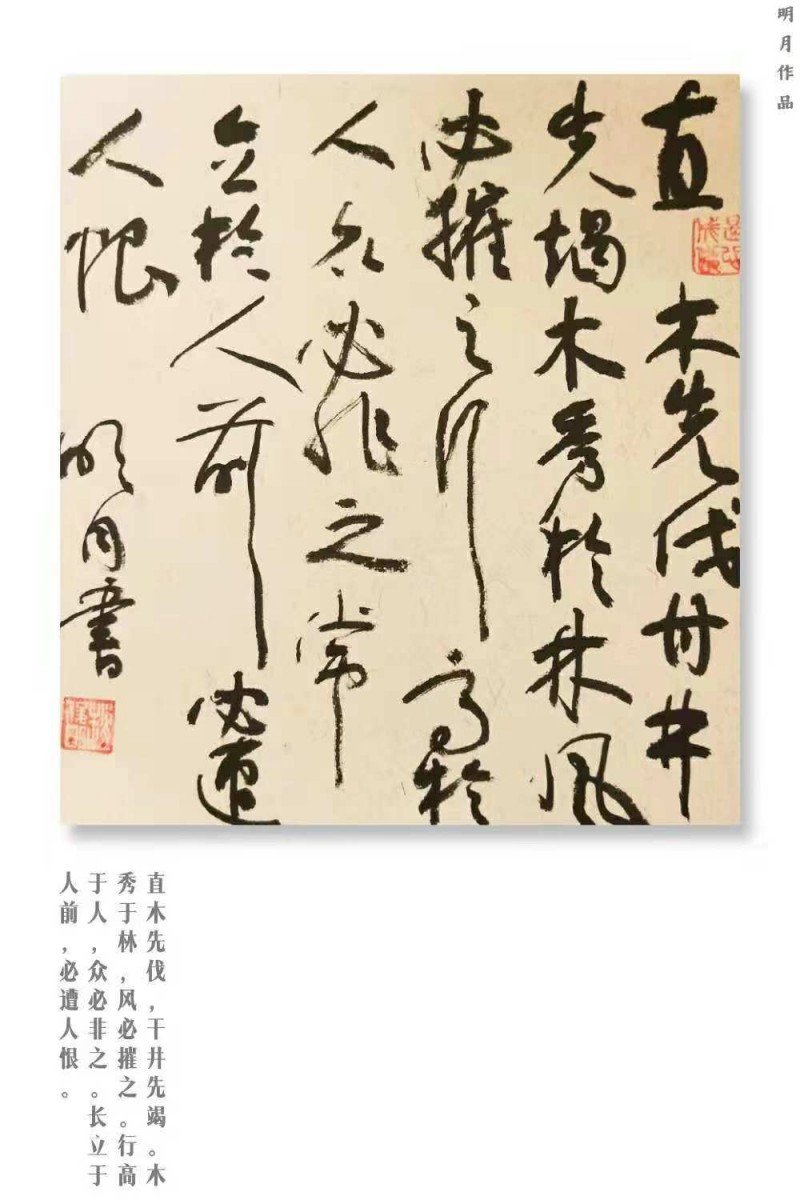 明月作品
直木先伐甘井
先竭木秀於林風
必摧之行高於
人众必非之常
立於人前必遭
人恨 明月書
直木先伐，干井先竭。木
秀于林，风必摧之。行高
于人，众必非之。长立于
人前，必遭人恨。